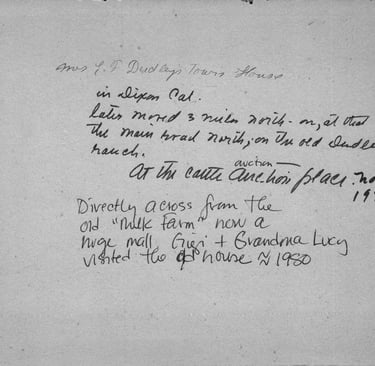 Mrs G. F Dudley's Town House
in Dixon Cal.
later moved 3 miles north - on, at that
the main road north, on the old Dudle
ranch.
auction
At the cattle Auction place. no
19
Directly across from the
old "Milk Farm" now a
huge mall. Gigi + Grandma Lucy
visited the old house ≈ 1980